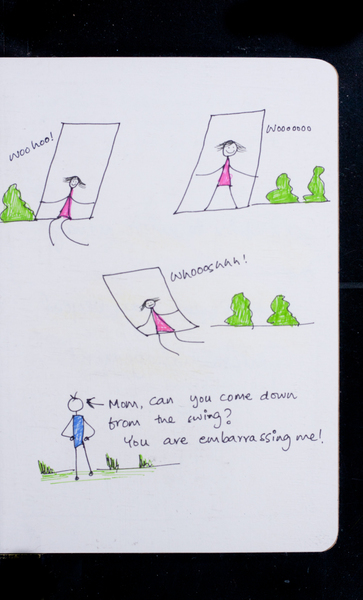 Woohoo!
Wooooooo
Whoooshhh!
Mom, can you come down
from the swing?
You are embarrassing me!